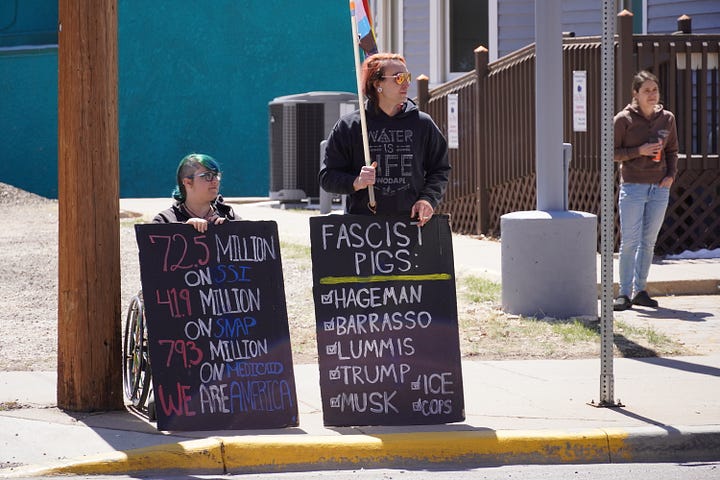 72.5 MILLION
ON SSI
41.9 MILLION
ON SNAP
79.3 MILLION
ON MEDICAID
WE ARE AMERICA
WATER
IS
LIFE
NODAPL
FASCIST
PIGS:
HAGEMAN
BARRASSO
LUMMIS
TRUMP
ICE
MUSK
COPS